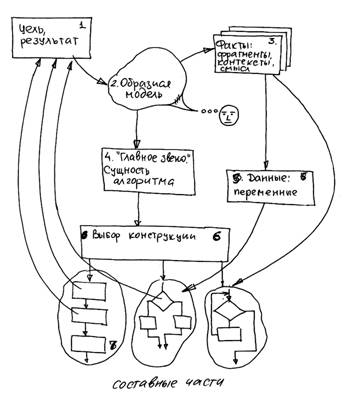 1
Цель,
результат
2. Образная
модель
3.
Факты:
фрагменты,
контексты,
смысл
4. "Главное звено."
Сущность
алгоритма
5. Данные: 5
переменние
6 Выбор конструкции 6
составные части